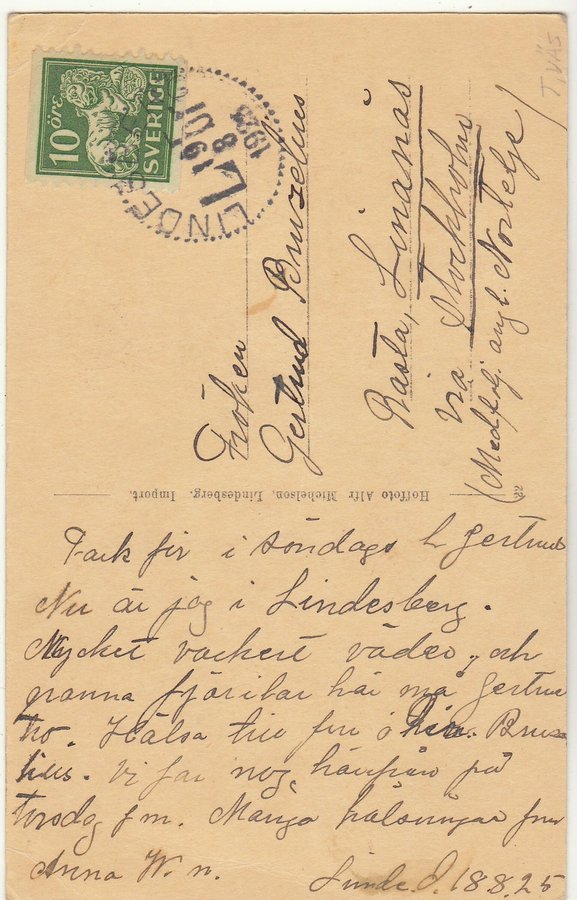 10 ÖRE
SVERIGE
LINDESBERG
18 8 1925
T. VÄS
Fröken
Gertrud Bruzelius
Rasta, Linanäs
via Stockholm
(Medfölj. ång. Nortelje)
Hoffoto Alfr Michelson, Lindesberg. Import.
Tack för i söndags L Gertrud
Nu är jag i Lindesberg.
Mycket vackert väder, och
granna fjärilar här må Gertrud
tro. Hälsa till fru o Bruze
lius. Vi far nog härifrån på
torsdag fm. Många hälsningar från
Anna W. n. Linde d. 18 8. 25